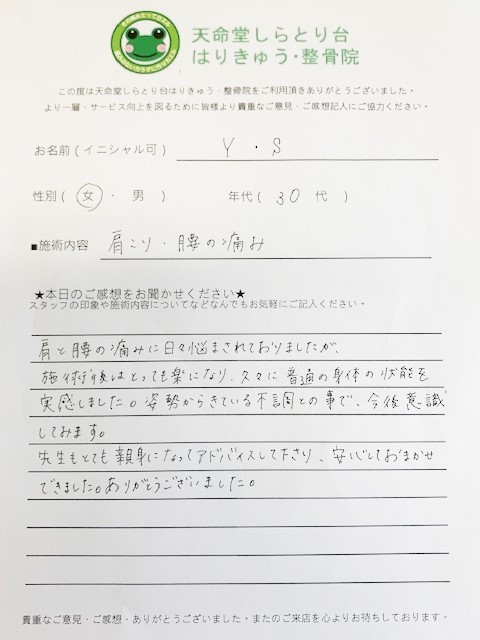 天命堂しらとり台
はりきゅう・整骨院
この度は天命堂しらとり台はりきゅう・整骨院をご利用頂きありがとうございました・
より一層・サービス向上を図るために皆様より貴重なご意見・ご感想記入にご協力ください・
お名前(イニシャル可) Y・S
性別(女・男) 年代(30代)
■施術内容 肩こり・腰の痛み
★本日のご感想をお聞かせください★
スタッフの印象や施術内容についてなどなんでもお気軽にご記入ください・
肩と腰の痛みに日々悩まされておりましたが、
施術後はとっても楽になり、久々に普通の身体の状態を
実感しました。姿勢からきている不調との事で、今後意識
してみます。
先生もとても親身になってアドバイスして下さり、安心しておまかせ
できました。ありがとうございました。
貴重なご意見・ご感想・ありがとうございました・またのご来店を心よりお待ちしております・